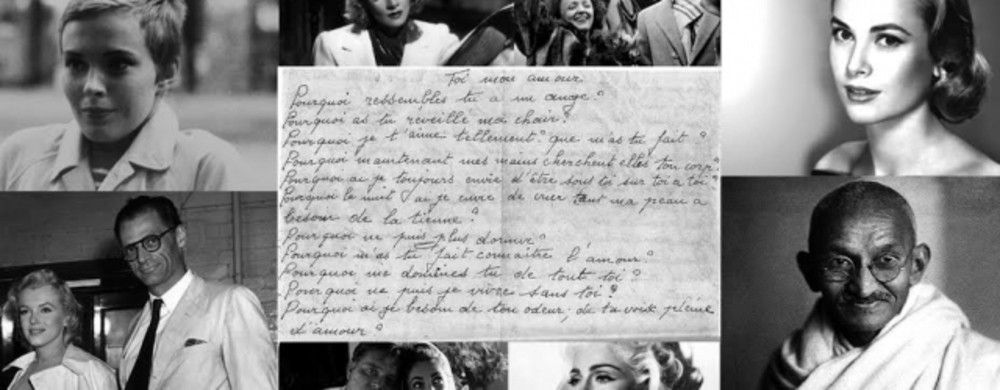 Toi mon amour
Pourquoi ressembles tu a un ange ?
Pourquoi as tu reveillé ma chair ?
Pourquoi je t'aime tellement que m'as tu fait ?
Pourquoi maintenant mes mains cherchent elles ton corps
Pourquoi ai je toujours envie d'être sous toi sur toi a toi ?
Pourquoi la nuit ai je envie de crier tant ma peau a
besoin de la tienne ?
Pourquoi ne puis plus dormir ?
Pourquoi m'as tu fait connaître l'amour ?
Pourquoi me domines tu de tout toi ?
Pourquoi ne puis je vivre sans toi ?
Pourquoi ai je besoin de ton odeur, de ta voix pleine
d'amour ?